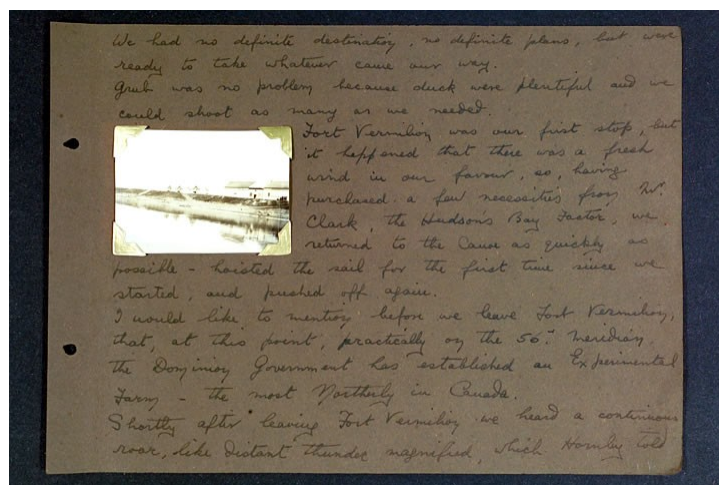 We had no definite destination, no definite plans, but were
ready to take whatever came our way.
Grub was no problem because duck were plentiful and we
could shoot as many as we needed.
Fort Vermilion was our first stop, but
it happened that there was a fresh
wind in our favour, so, having
purchased a few necessities from Mr.
Clark, the Hudson's Bay Factor, we
returned to the Canoe as quickly as
possible - hoisted the sail for the first time since we
started, and pushed off again.
I would like to mention before we leave Fort Vermilion,
that, at this point, practically on the 56th Meridian
the Dominion Government has established an Experimental
Farm - the most Northerly in Canada.
Shortly after leaving Fort Vermilion we heard a continuous
roar, like distant thunder magnified, which Hornby told